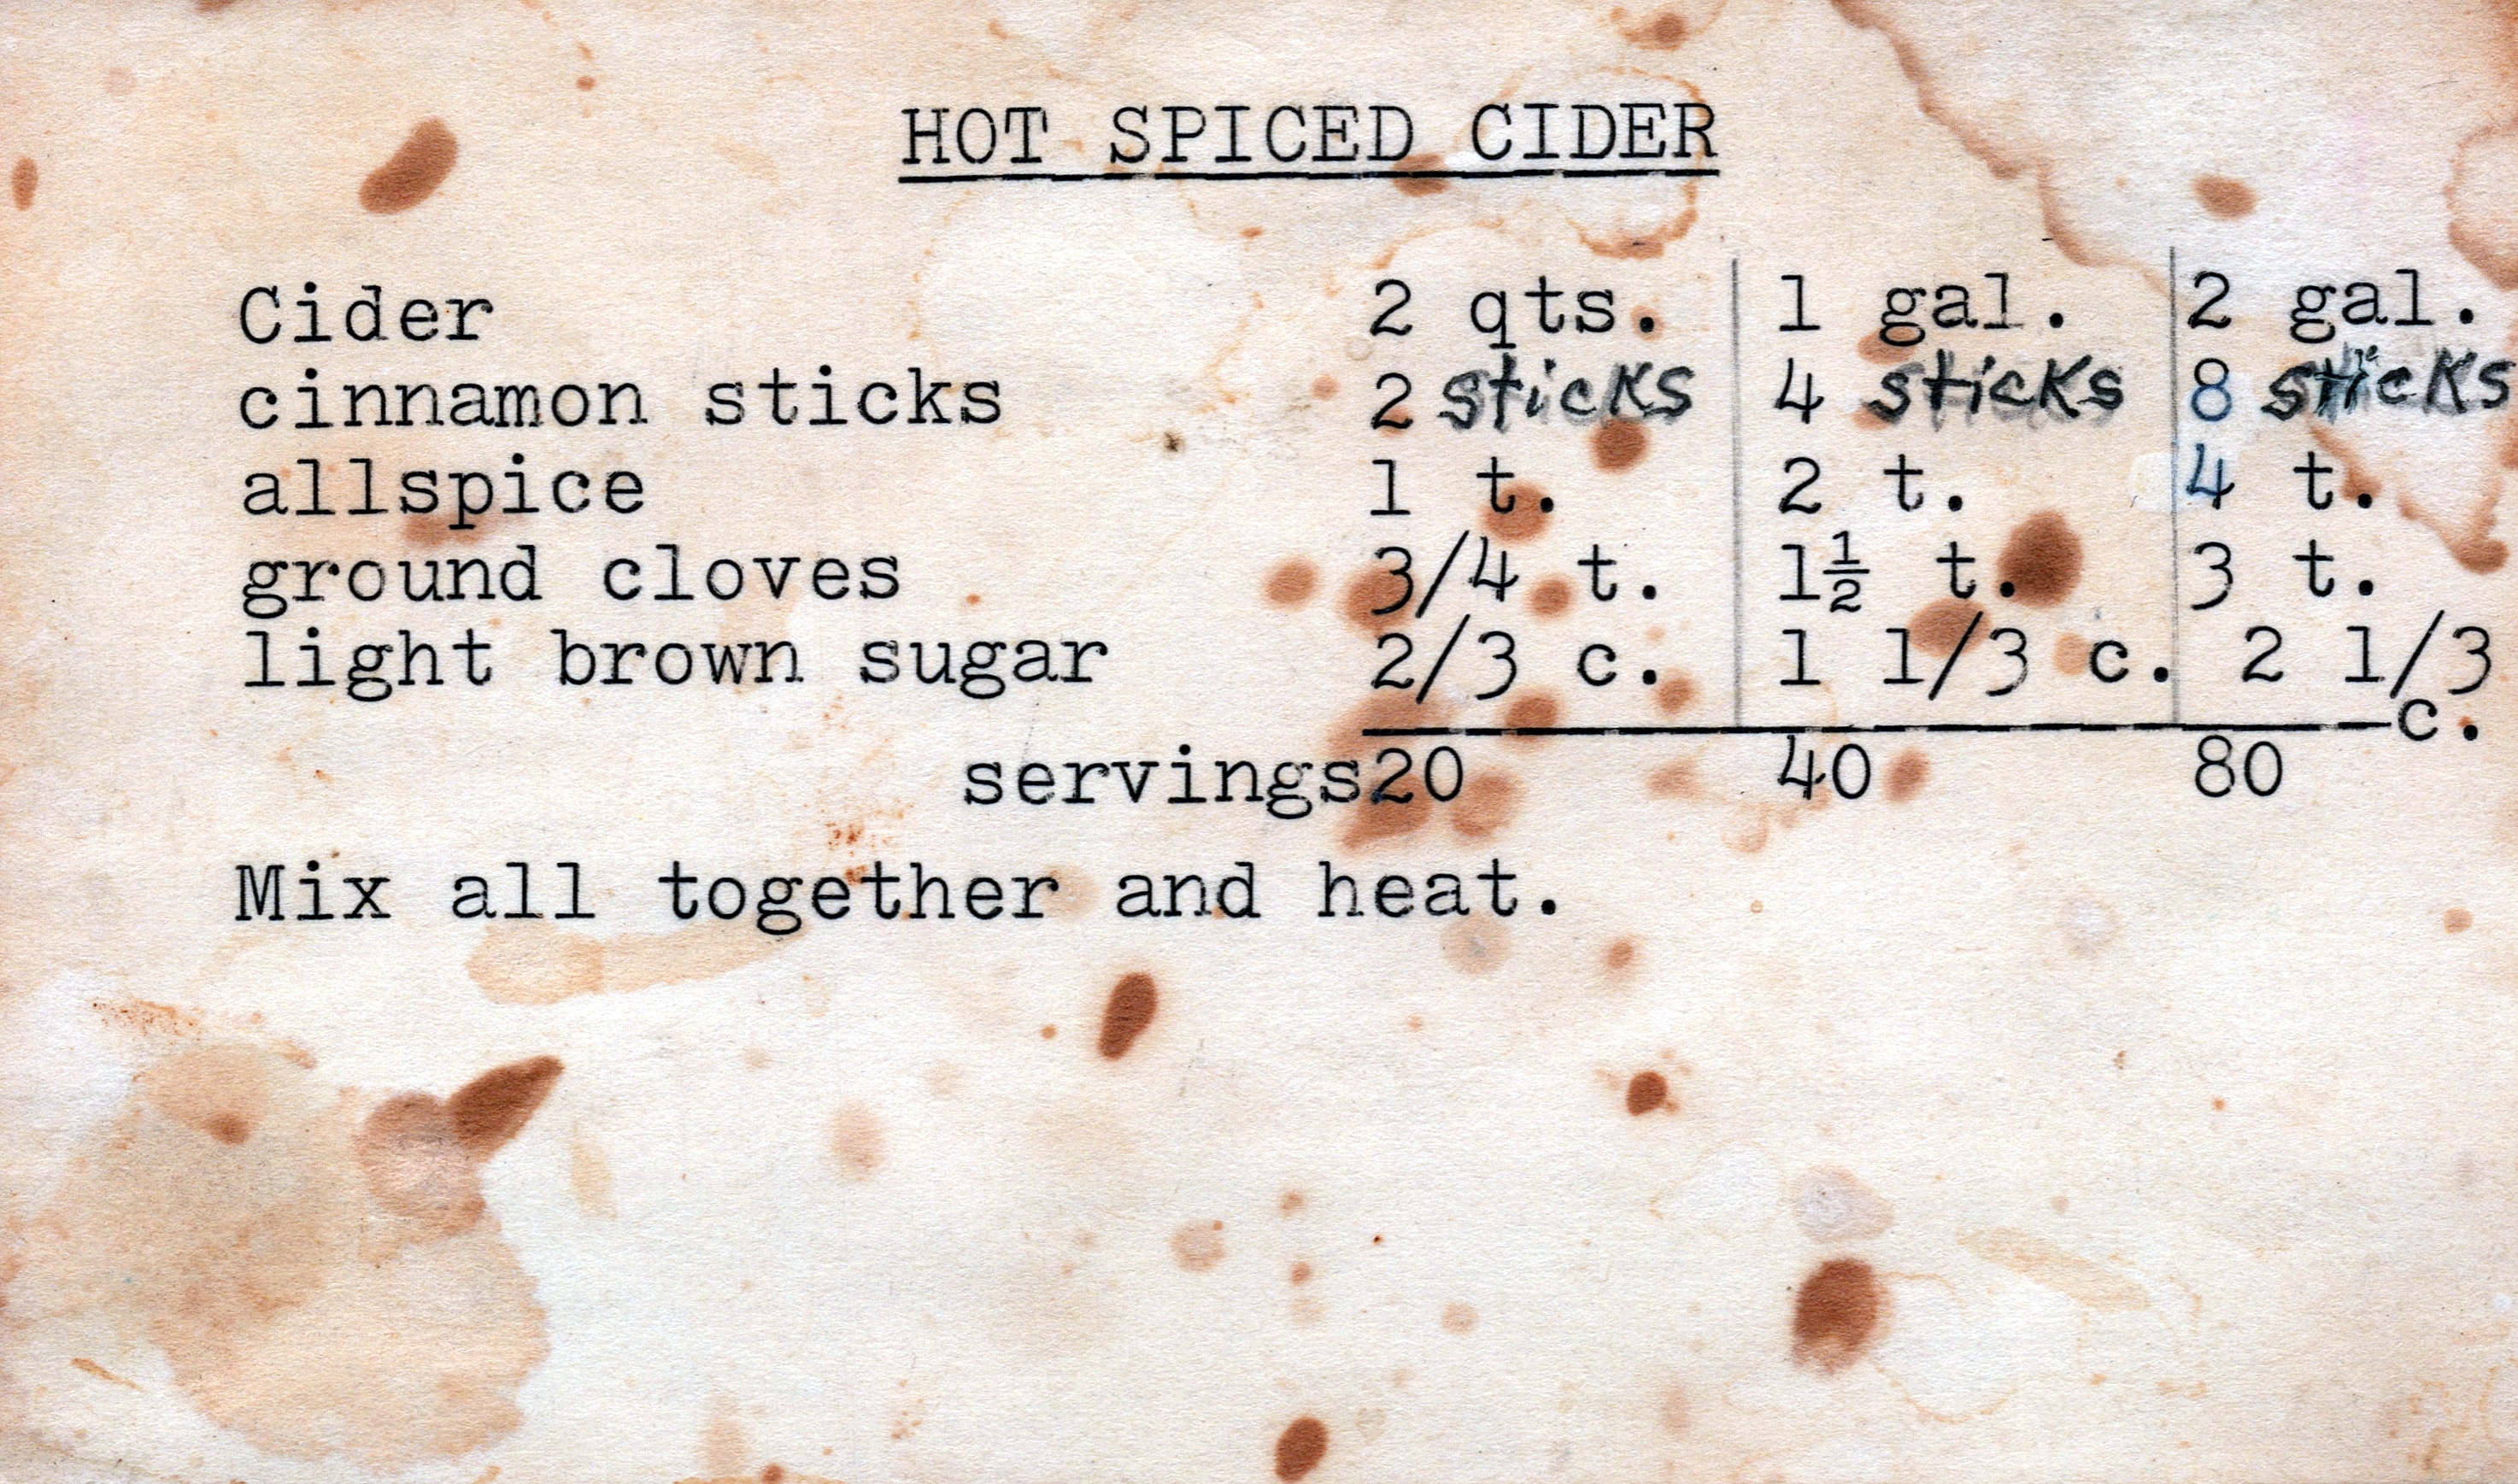 HOT SPICED CIDER
Cider 2 qts. 1 gal. 2 gal.
cinnamon sticks 2 sticks 4 sticks 8 sticks
allspice 1 t. 2 t. 4 t.
ground cloves 3/4 t. 1½ t. 3 t.
light brown sugar 2/3 c. 1 1/3 c. 2 1/3 c.
servings 20 40 80
Mix all together and heat.